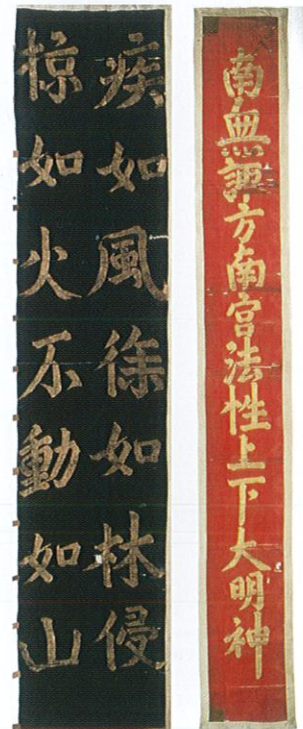 疾如風徐如林侵
掠如火不動如山
南無諏方南宮法性上下大明神